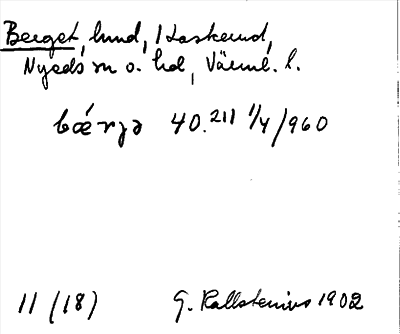 Berget, lund, 1 Laskerud,
Nyeds sn o. hd, Värml. l.
bærjə 40.211 1/4/960
11 (18) G. Kallstenius 1902